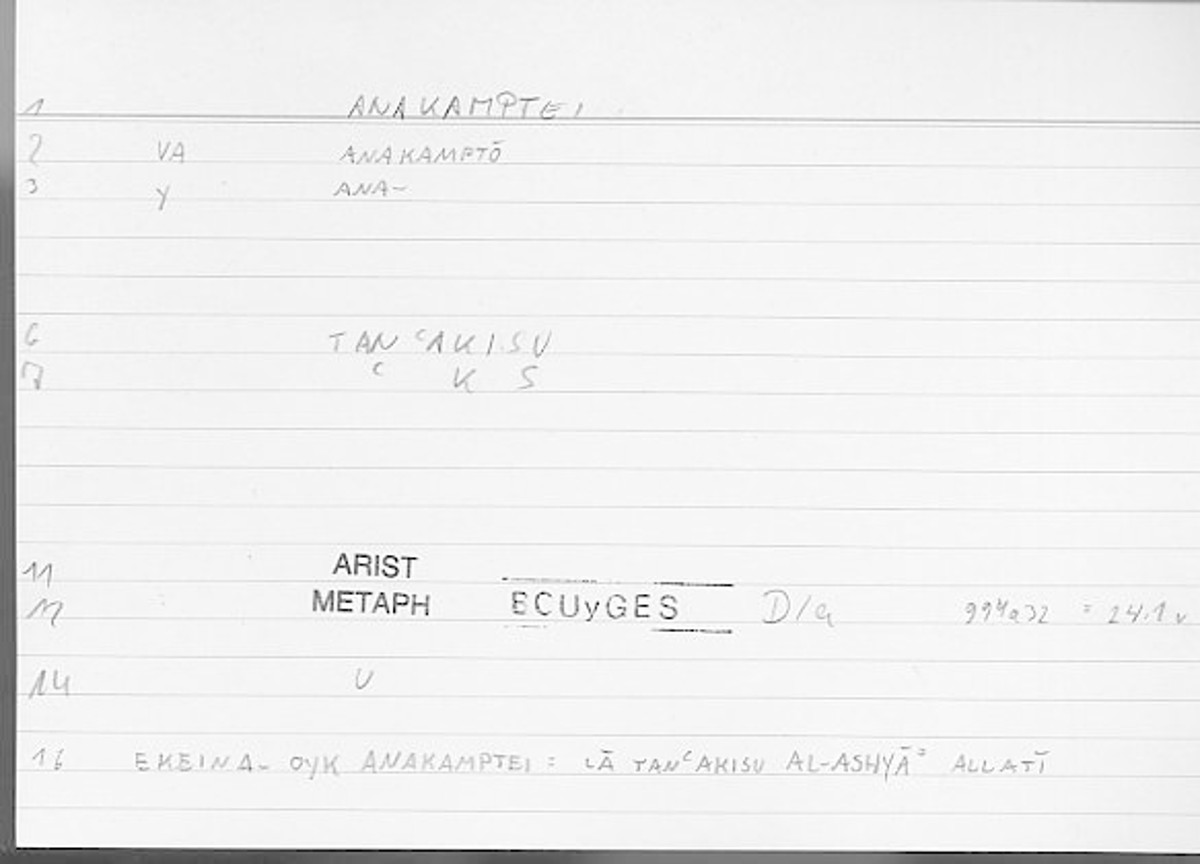 1 ANAKAMPTEI
2 VA ANAKAMPTŌ
3 Y ANA-
6 TANʿAKISU
7 ʿ K S
11 ARIST
12 METAPH ECUyGES D/a 994a32 = 24.1
14 U
16 EKEINA- OYK ANAKAMPTEI = LĀ TANʿAKISU AL-ASHYĀʾ ALLATĪ